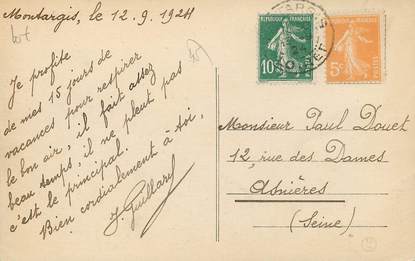 Montargis, le 12.9.1924
Je profite
de mes 15 jours de
vacances pour respirer
le bon air, il fait assez
beau temps, il ne pleut pas
c'est le principal.
Bien cordialement à toi,
J. Guillard
RÉPUBLIQUE FRANÇAISE
10c
POSTES
RÉPUBLIQUE FRANÇAISE
5c
POSTES
Monsieur Paul Douet
12, rue des Dames
Asnières
(Seine)